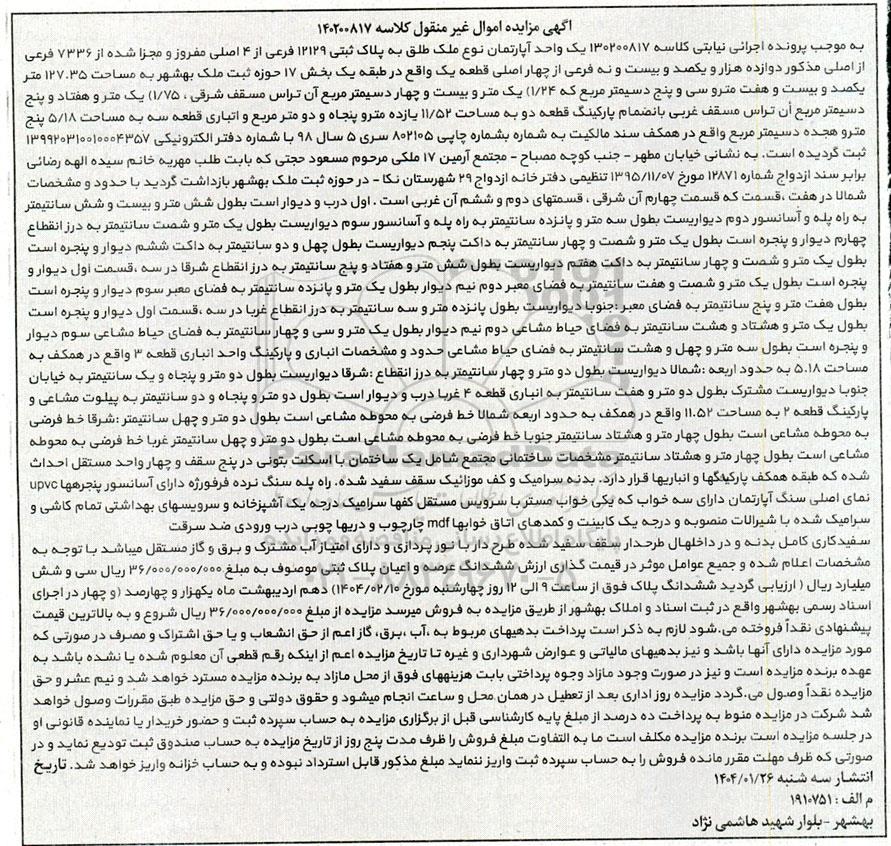 آگهی مزایده اموال غیر منقول کلاسه ۱۴۰۲۰۰۸۱۷
به موجب پرونده اجرائی نیابتی کلاسه ۱۳۰۲۰۰۸۱۷ یک واحد آپارتمان نوع ملک طلق به پلاک ثبتی ۱۲۱۲۹ فرعی از ۴ اصلی مفروز و مجزا شده از ۷۳۳۶ فرعی
از اصلی مذکور دوازده هزار و یکصد و بیست و نه فرعی از چهار اصلی قطعه یک واقع در طبقه یک بخش ۱۷ حوزه ثبت ملک بهشهر به مساحت ۱۲۷.۳۵ متر
یکصد و بیست و هفت متر و سی و پنج دسیمتر مربع که ۱/۲۴) یک متر و بیست و چهار دسیمتر مربع آن تراس مسقف شرقی ، ۱/۷۵) یک متر و هفتاد و پنج
دسیمتر مربع أن تراس مسقف غربی بانضمام پارکینگ قطعه دو به مساحت ۱۱/۵۲ یازده مترو پنجاه و دو متر مربع و انباری قطعه سه به مساحت ۵/۱۸ پنج
مترو هجده دسیمتر مربع واقع در همکف سند مالکیت به شماره بشماره چاپی ۸۰۲۱۰۵ سری ۵ سال ۹۸ با شماره دفتر الکترونیکی ۱۳۹۹۲۰۳۱۰۰۱۰۰۰۴۳۵۷
ثبت گردیده است. به نشانی خیابان مطهر - جنب کوچه مصباح - مجتمع آرمین ۱۷ ملکی مرحوم مسعود حجتی که بابت طلب مهریه خانم سیده الهه رضائی
برابر سند ازدواج شماره ۱۲۸۷۱ مورخ ۱۳۹۵/۱۱/۰۷ تنظیمی دفتر خانه ازدواج ۲۹ شهرستان نکا - در حوزه ثبت ملک بهشهر بازداشت گردید با حدود و مشخصات
شمالا در هفت ،قسمت که قسمت چهارم آن شرقی ، قسمتهای دوم و ششم آن غربی است . اول درب و دیوار است بطول شش متر و بیست و شش سانتیمتر
به راه پله و آسانسور دوم دیواریست بطول سه متر و پانزده سانتیمتر به راه پله و آسانسور سوم دیواریست بطول یک متر و شصت سانتیمتر به درز انقطاع
چهارم دیوار و پنجره است بطول یک متر و شصت و چهار سانتیمتر به داکت پنجم دیواریست بطول چهل و دو سانتیمتر به داکت ششم دیوار و پنجره است
بطول یک متر و شصت و چهار سانتیمتر به داکت هفتم دیواریست بطول شش متر و هفتاد و پنج سانتیمتر به درز انقطاع شرقا در سه ،قسمت اول دیوار و
پنجره است بطول یک متر و شصت و هفت سانتیمتر به فضای معبر دوم نیم دیوار بطول یک متر و پانزده سانتیمتر به فضای معبر سوم دیوار و پنجره است
بطول هفت متر و پنج سانتیمتر به فضای معبر :جنوبا دیواریست بطول پانزده متر و سه سانتیمتر به درز انقطاع غربا در سه ،قسمت اول دیوار و پنجره است
بطول یک متر و هشتاد و هشت سانتیمتر به فضای حیاط مشاعی دوم نیم دیوار بطول یک متر و سی و چهار سانتیمتر به فضای حیاط مشاعی سوم دیوار
و پنجره است بطول سه متر و چهل و هشت سانتیمتر به فضای حیاط مشاعی حدود و مشخصات انباری و پارکینگ واحد انباری قطعه ۳ واقع در همکف به
مساحت ۵.۱۸ به حدود اربعه :شمالا دیواریست بطول دو متر و چهار سانتیمتر به درز انقطاع :شرقا دیواریست بطول دو متر و پنجاه و یک سانتیمتر به خیابان
جنوبا دیواریست مشترک بطول دو متر و هفت سانتیمتر به انباری قطعه ۴ غربا درب و دیوار است بطول دو متر و پنجاه و دو سانتیمتر به پیلوت مشاعی و
پارکینگ قطعه ۲ به مساحت ۱۱.۵۲ واقع در همکف به حدود اربعه شمالا خط فرضی به محوطه مشاعی است بطول دو متر و چهل سانتیمتر :شرقا خط فرضی
به محوطه مشاعی است بطول چهار متر و هشتاد سانتیمتر جنوبا خط فرضی به محوطه مشاعی است بطول دو متر و چهل سانتیمتر غربا خط فرضی به محوطه
مشاعی است بطول چهار متر و هشتاد سانتیمتر مشخصات ساختمانی مجتمع شامل یک ساختمان با اسکلت بتونی در پنج سقف و چهار واحد مستقل احداث
شده که طبقه همکف پارکینگها و انباریها قرار دارد. بدنه سرامیک و کف موزائیک سقف سفید شده. راه پله سنگ نرده فرفورژه دارای آسانسور پنجرهها upvc
نمای اصلی سنگ آپارتمان دارای سه خواب که یکی خواب مستر با سرویس مستقل کفها سرامیک درجه یک آشپزخانه و سرویسهای بهداشتی تمام کاشی و
سرامیک شده با شیرالات منصوبه و درجه یک کابینت و کمدهای اتاق خوابها mdf چارچوب و دربها چوبی درب ورودی ضد سرقت
سفیدکاری کامل بدنه و در داخلهال طرحدار سقف سفید شده طرح دار با نور پردازی و دارای امتیاز آب مشترک و برق و گاز مستقل میباشد با توجه به
مشخصات اعلام شده و جمیع عوامل موثر در قیمت گذاری ارزش ششدانگ عرصه و اعیان پلاک ثبتی موصوف به مبلغ ۳۶/۰۰۰/۰۰۰/۰۰۰ ریال سی و شش
میلیارد ریال ( ارزیابی گردید ششدانگ پلاک فوق از ساعت ۹ الی ۱۲ روز چهارشنبه مورخ ۱۴۰۴/۰۲/۱۰) دهم اردیبهشت ماه یکهزار و چهارصد (و چهار در اجرای
اسناد رسمی بهشهر واقع در ثبت اسناد و املاک بهشهر از طریق مزایده به فروش میرسد مزایده از مبلغ ۳۶/۰۰۰/۰۰۰/۰۰۰ ریال شروع و به بالاترین قیمت
پیشنهادی نقداً فروخته می.شود لازم به ذکر است پرداخت بدهیهای مربوط به ،آب ،برق، گاز اعم از حق انشعاب و یا حق اشتراک و مصرف در صورتی که
مورد مزایده دارای آنها باشد و نیز بدهیهای مالیاتی و عوارض شهرداری و غیره تا تاریخ مزایده اعم از اینکه رقم قطعی آن معلوم شده یا نشده باشد به
عهده برنده مزایده است و نیز در صورت وجود مازاد وجوه پرداختی بابت هزینههای فوق از محل مازاد به برنده مزایده مسترد خواهد شد و نیم عشر و حق
مزایده نقداً وصول می.گردد مزایده روز اداری بعد از تعطیل در همان محل و ساعت انجام میشود و حقوق دولتی و حق مزایده طبق مقررات وصول خواهد
شد شرکت در مزایده منوط به پرداخت ده درصد از مبلغ پایه کارشناسی قبل از برگزاری مزایده به حساب سپرده ثبت و حضور خریدار یا نماینده قانونی او
در جلسه مزایده است برنده مزایده مکلف است ما به التفاوت مبلغ فروش را ظرف مدت پنج روز از تاریخ مزایده به حساب صندوق ثبت تودیع نماید و در
صورتی که ظرف مهلت مقرر مانده فروش را به حساب سپرده ثبت واریز ننماید مبلغ مذکور قابل استرداد نبوده و به حساب خزانه واریز خواهد شد. تاریخ
انتشار سه شنبه ۱۴۰۴/۰۱/۲۶
م الف : ۱۹۱۰۷۵۱
بهشهر -بلوار شهید هاشمی نژاد